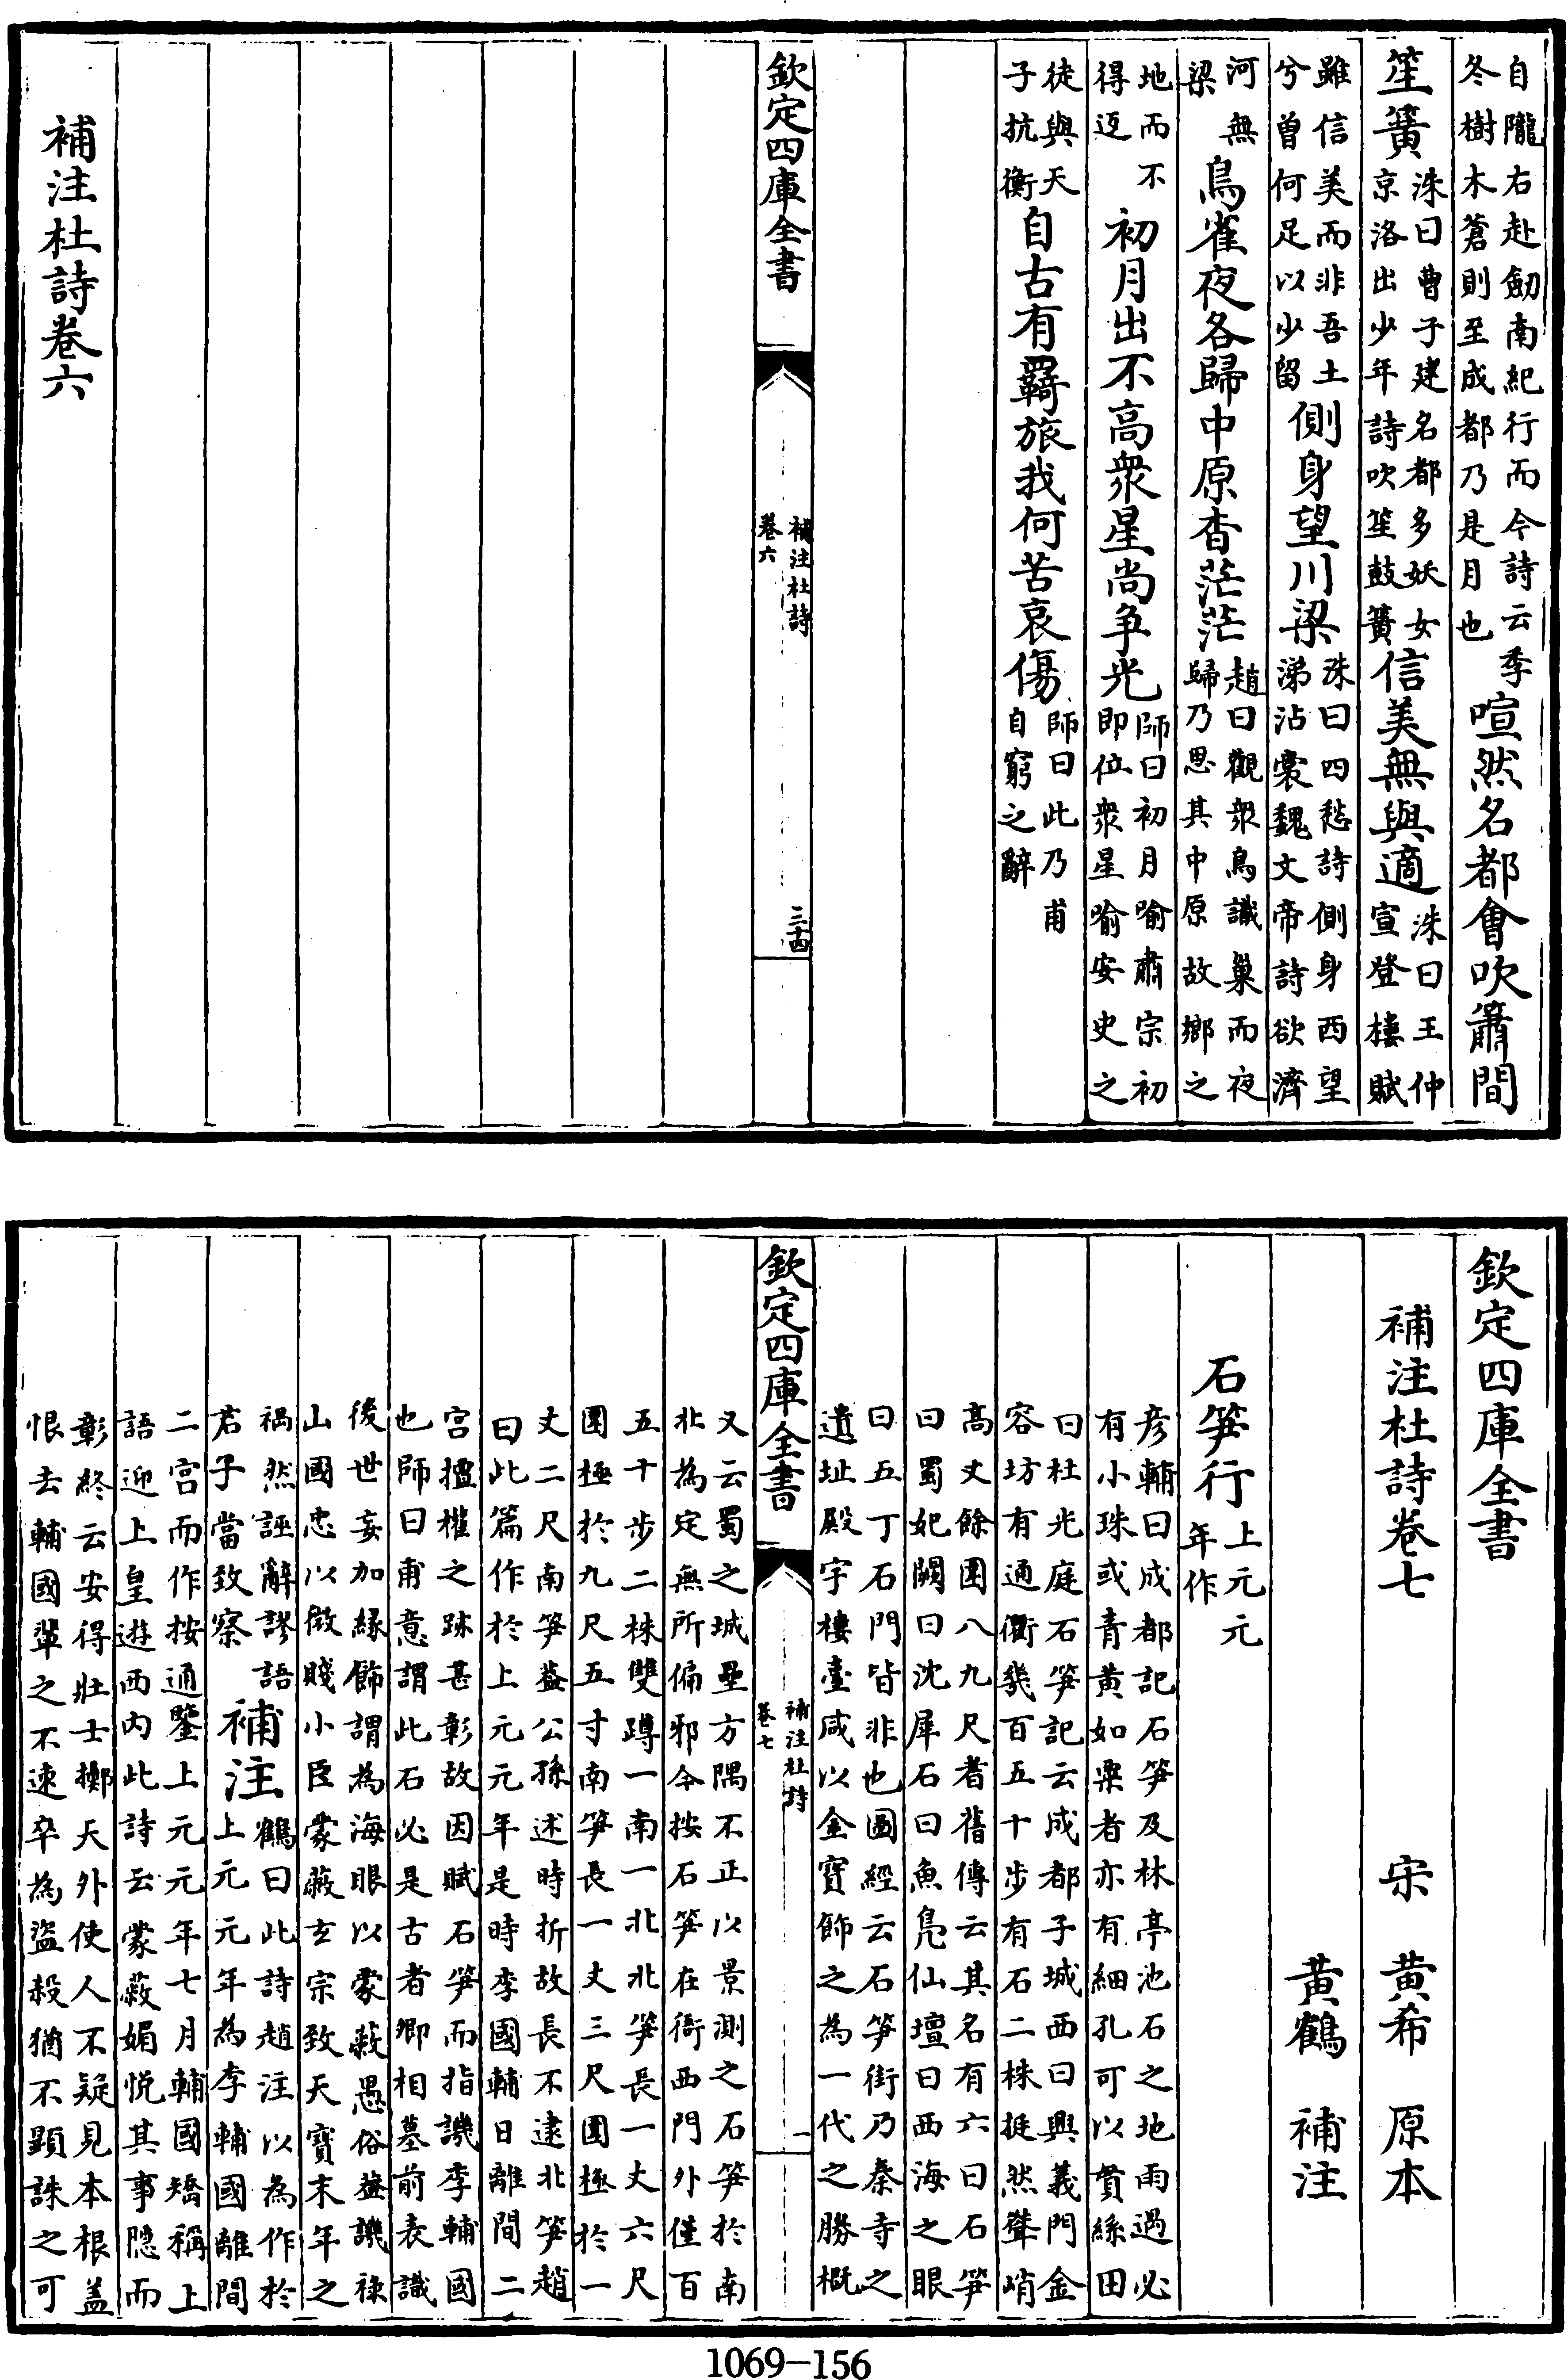 自隴右赴劒南紀行而今詩云季
冬樹木蒼則至成都乃是月也
喧然名都會吹簫間
笙簧
洙曰曹子建名都多妖女
京洛出少年詩吹笙鼓簧
信美無與適
洙曰王仲
宣登樓賦
雖信美而非吾土
兮曽何足以少留
側身望川梁
洙曰四愁詩側身西望
涕沾裳魏文帝詩欲濟
河無
梁
鳥雀夜各歸中原杳茫茫
趙曰觀衆鳥識巢而夜
歸乃思其中原故鄉之
地而不
得返
初月出不高衆星尚争光
師曰初月喻肅宗初
即位衆星喻安史之
徒與天
子抗衡
自古有羇旅我何苦哀傷
師曰此乃甫
自窮之辭
欽定四庫全書
補注杜詩
卷六
三十四
補注杜詩卷六
欽定四庫全書
補注杜詩卷七
宋 黄希 原本
黄鶴 補注
石笋行
上元元
年作
彦輔曰成都記石笋及林亭池石之地雨過必
有小珠或青黄如粟者亦有細孔可以貫絲田
曰杜光庭石笋記云成都子城西曰興義門金
容坊有通衢幾百五十步有石二株挺然聳峭
高丈餘圍八九尺耆舊傳云其名有六曰石笋
曰蜀妃闕曰沈犀石曰魚凫仙壇曰西海之眼
曰五丁石門皆非也圖經云石笋街乃秦寺之
遺址殿宇樓臺咸以金寶飾之為一代之勝槪
欽定四庫全書
補注杜詩
卷七
一
又云蜀之城壘方隅不正以景測之石笋於南
北為定無所偏邪今按石笋在衙西門外僅百
五十步二株雙蹲一南一北北笋長一丈六尺
圍極於九尺五寸南笋長一丈三尺圍極於一
丈二尺南笋葢公孫述時折故長不逮北笋趙
曰此篇作於上元元年是時李國輔日離間二
宫擅權之跡甚彰故因賦石笋而指譏李輔國
也師曰甫意謂此石必是古者卿相墓前表識
後世妄加緣飾謂為海眼以蒙蔽愚俗葢譏禄
山國忠以微賤小臣蒙蔽玄宗致天寶末年之
禍然誣辭謬語
若子當致察
補注
鶴曰此詩趙注以為作於
上元元年為李輔國離間
二宫而作按通鑒上元元年七月輔國矯稱上
語迎上皇遊西内此詩云蒙蔽媚悦其事隠而
彰終云安得壯士擲天外使人不疑見本根盖
恨去輔國輩之不速卒為盗殺猶不顯誅之可
1069-156